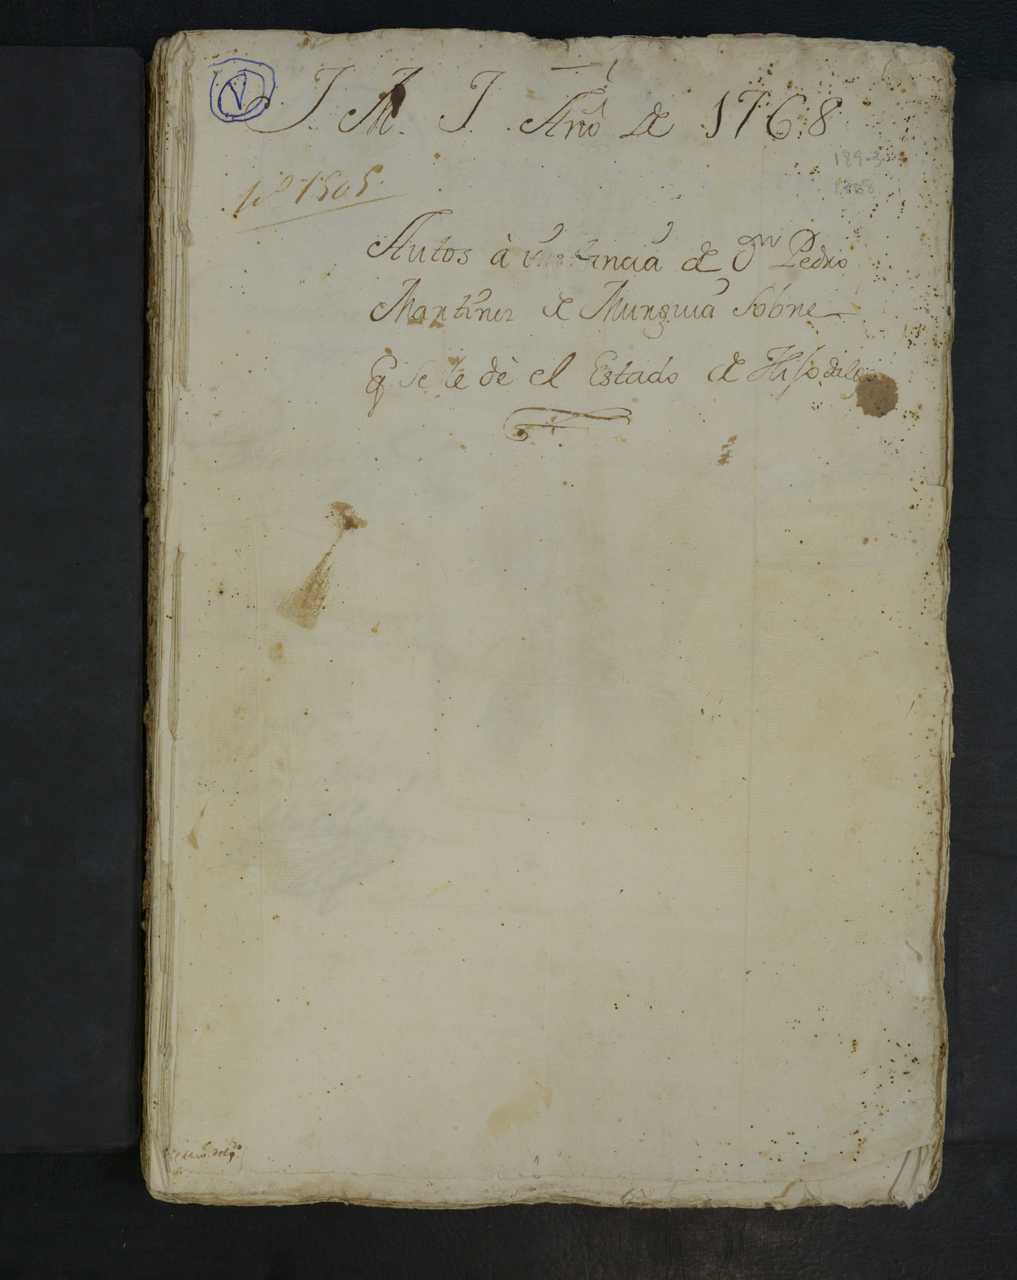 V J. M. J. Año de 1768
189-3
1768
nº 1505
Autos à instancia de Dn Pedro
Martinez de Murguia Sobre
q̃ se le dè el Estado de Hijodalgo